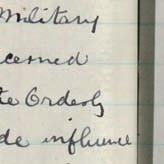 Military
cerned
te Orderly
de influence